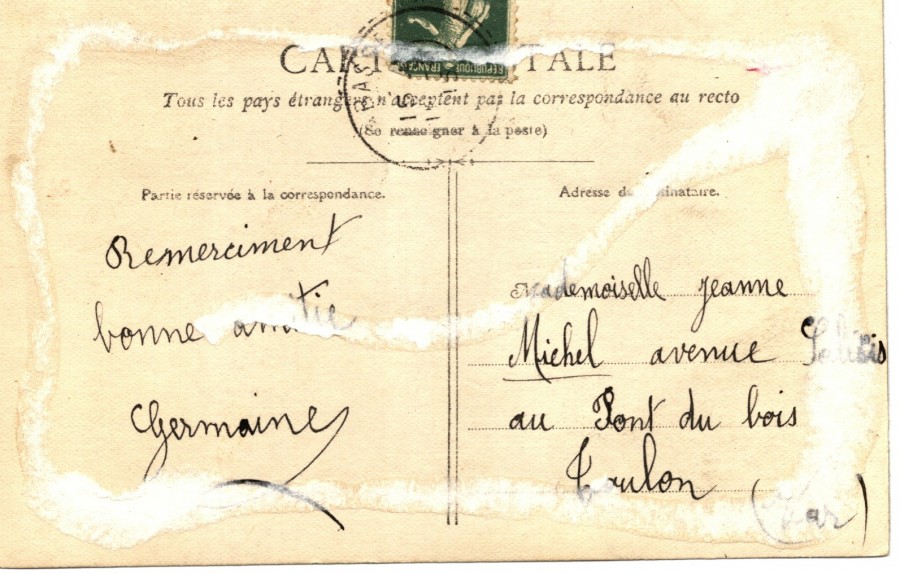 CARTE POSTALE
RÉPUBLIQUE FRANÇAISE
Tous les pays étrangers n'acceptent pas la correspondance au recto
(Se renseigner à la poste)
Partie réservée à la correspondance.
Adresse du destinataire.
Remerciment
bonne amitie
Germaine
Mademoiselle Jeanne
Michel avenue
au Pont du bois
Toulon
(Var)